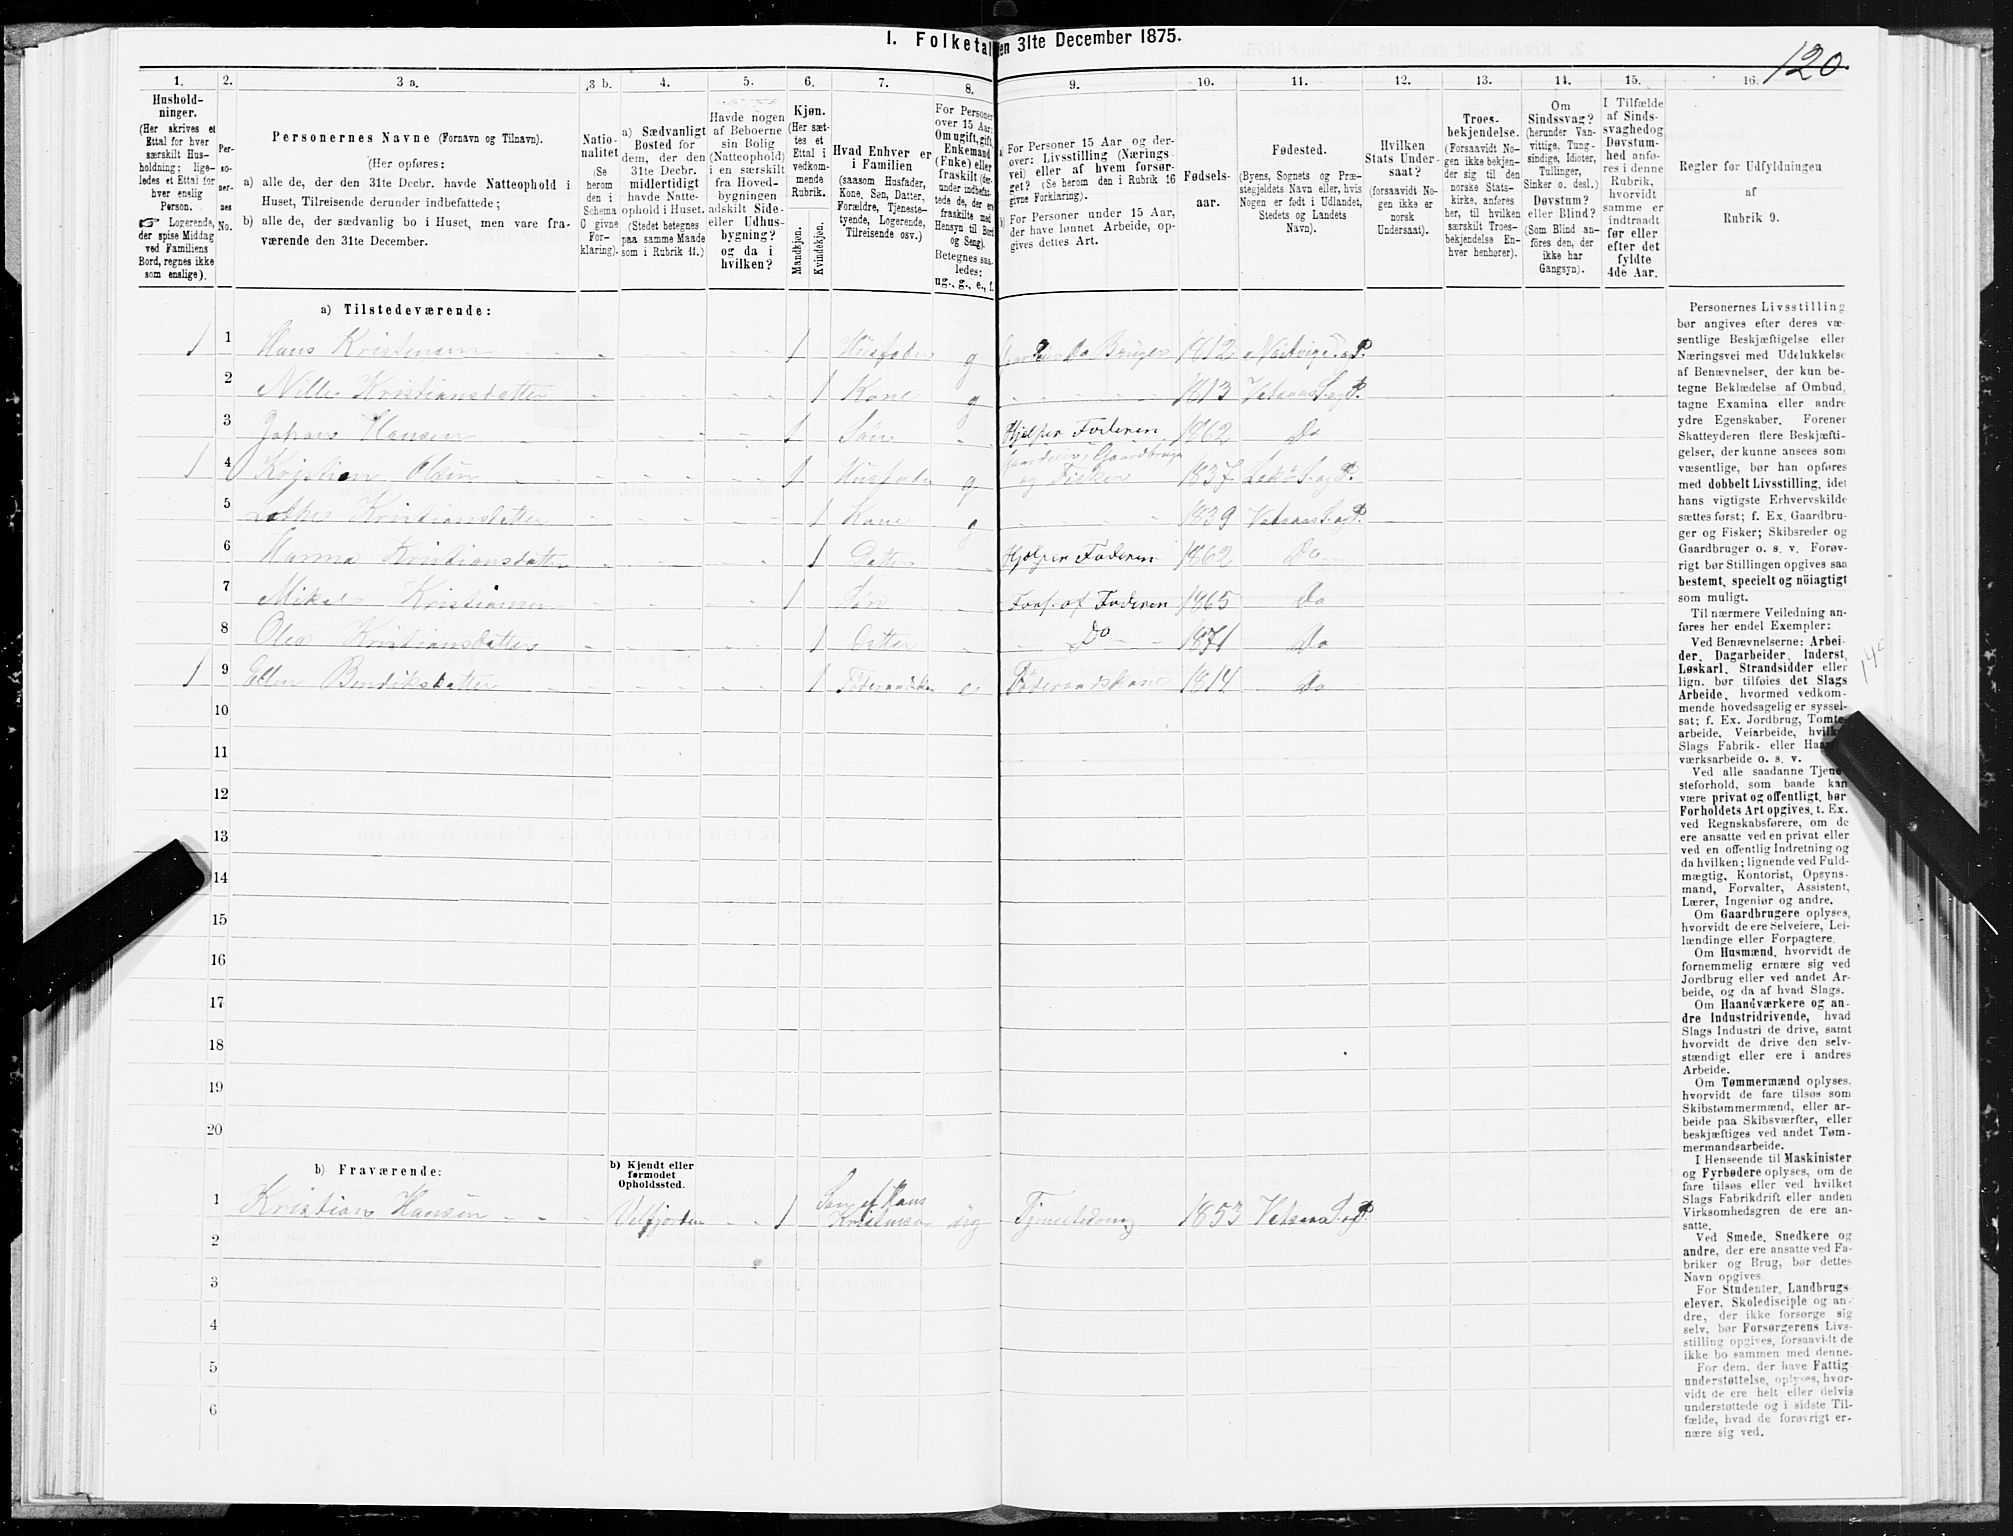 I. Folketal den 31te December 1875.
120.
1. 2. 3 a. 3 b. 4. 5. 6. 7. 8. 9. 10. 11. 12. 13. 14. 15. 16.
Hushold-
ninger.
(Her skrives et
Ettal for hver
særskilt Hus-
holdning; lige-
ledes et Ettal for
hver enslig
Person.
☞ Logerende,
der spise Middag
ved Familiens
Bord, regnes ikke
som enslige).
Per-
so-
ner-
nes
No.
Personernes Navne (Fornavn og Tilnavn).
(Her opføres:
a) alle de, der den 31te Decbr. havde Natteophold i
Huset, Tilreisende derunder indbefattede;
b) alle de, der sædvanlig bo i Huset, men vare fra-
værende den 31te December.
Natio-
nalitet
(Se
herom
den i
Schema
O givne
For-
klaring).
a) Sædvanligt
Bosted for
dem, der den
31te Decbr.
midlertidigt
havde Natte-
ophold i Huset.
(Stedet betegnes
paa samme Maade
som i Rubrik 11.)
Havde nogen
af Beboerne
sin Bolig
(Natteophold)
i en særskilt
fra Hoved-
bygningen
adskilt Side-
eller Udhus-
bygning?
og da i
hvilken?
Kjøn.
(Her sæt-
tes et
Ettal i
vedkom-
mende
Rubrik.
Mandkjøn.
Kvindekjøn.
Hvad Enhver er
i Familien
(saasom Husfader,
Kone, Søn, Datter,
Forældre, Tjeneste-
tyende, Logerende,
Tilreisende osv.)
For Personer
over 15 Aar:
Om ugift, gift,
Enkemand
(Enke) eller
fraskilt (der-
under indbefat-
tede de, der ere
fraskilte med
Hensyn til Bord
og Seng).
Betegnes saa-
ledes:
ug., g., e., f.
a) For Personer 15 Aar og der-
over: Livsstilling (Nærings-
vei) eller af hvem forsør-
get? (Se herom den i Rubrik 16
givne Forklaring).
b) For Personer under 15 Aar,
der have lønnet Arbeide, op-
gives dettes Art.
Fødsels-
aar.
Fødested.
(Byens, Sognets og Præ-
stegjeldets Navn eller, hvis
Nogen er født i Udlandet,
Stedets og Landets
Navn).
Hvilken
Stats Under-
saat?
(forsaavidt No-
gen ikke er
norsk
Undersaat).
Troes-
bekjendelse.
(Forsaavidt No-
gen ikke bekjen-
der sig til den
norske Stats-
kirke, anføres
her, til hvilken
særskilt Troes-
bekjendelse En-
hver henhører).
Om
Sindssvag?
(herunder Van-
vittige, Tung-
sindige, Idioter,
Tullinger,
Sinker o. desl.)
Døvstum?
eller Blind?
(Som Blind an-
føres den, der
ikke har
Gangsyn).
I Tilfælde
af Sinds-
svaghed og
Døvstum-
hed anfø-
res i denne
Rubrik,
hvorvidt
samme er
indtraadt
før eller
efter det
fyldte
4de Aar.
Regler for Udfyldningen
af
Rubrik 9.
a) Tilstedeværende:
1 1 Hans Kristensen 1 Husfader g Bruger 1812
2 Nille Kristiansdatter 1 Kone g 1813 Vatsaas S. og P.
3 Johan Hansen 1 Søn Hjelper Faderen 1862 Do
1 4 Kristian Olsen 1 Husfader g Gaardbruger og Fisker 1837 Lekø S. og P.
5 Kristiansdatter 1 Kone g 1839 Vatsaas S. og P.
6 Hanna Kristiansdatter 1 Datter Hjelper Faderen 1862 Do
7 Mikal Kristiansen 1 Søn Fors. af Faderen 1865 Do
8 Olea Kristiansdatter 1 Datter Do 1871 Do
1 9 Ellen Bendiksdatter 1 Føderaadskone e Føderaadskone 1814 Do
10
11
12
13
14
15
16
17
18
19
20
b) Fraværende:
b) Kjendt eller
formodet
Opholdssted.
1 Kristian Hansen Velfjorden 1 Søn af Hans Kristensen ug Tjenestedreng 1853 Vatsaas S. og P.
2
3
4
5
6
Personernes Livsstilling
bør angives efter deres væ-
sentlige Beskjæftigelse eller
Næringsvei med Udelukkelse
af Benævnelser, der kun be-
tegne Beklædelse af Ombud,
tagne Examina eller andre
ydre Egenskaber. Forener
Skatteyderen flere Beskjæfti-
gelser, der kunne ansees som
væsentlige, bør han opføres
med dobbelt Livsstilling, idet
hans vigtigste Erhvervskilde
sættes først; f. Ex. Gaardbru-
ger og Fisker; Skibsreder og
Gaardbruger o. s. v. Forøv-
rigt bør Stillingen opgives saa
bestemt, specielt og nöiagtigt
som muligt.
Til nærmere Veiledning an-
føres her endel Exempler:
Ved Benævnelserne: Arbei-
der, Dagarbeider, Inderst,
Løskarl, Strandsidder eller
lign. bør tilføies det Slags
Arbeide, hvormed vedkom-
mende hovedsagelig er syssel-
sat; f. Ex. Jordbrug, Tomte-
arbeide, Veiarbeide, hvilket
Slags Fabrik- eller Haand-
værksarbeide o. s. v.
Ved alle saadanne Tjene-
steforhold, som baade kan
være privat og offentligt, bør
Forholdets Art opgives, t. Ex.
ved Regnskabsførere, om de
ere ansatte ved en privat eller
ved en offentlig Indretning og
da hvilken; lignende ved Fuld-
mægtig, Kontorist, Opsyns-
mand, Forvalter, Assistent,
Lærer, Ingeniør og andre.
Om Gaardbrugere oplyses,
hvorvidt de ere Selveiere, Lei-
lændinge eller Forpagtere.
Om Husmænd, hvorvidt de
fornemmelig ernære sig ved
Jordbrug eller ved andet Ar-
beide, og da af hvad Slags.
Om Haandværkere og an-
dre Industridrivende, hvad
Slags Industri de drive, samt
hvorvidt de drive den selv-
stændigt eller ere i andres
Arbeide.
Om Tømmermænd oplyses,
hvorvidt de fare tilsøs som
Skibstømmermænd, eller ar-
beide paa Skibsværfter, eller
beskjæftiges ved andet Tøm-
mermandsarbeide.
I Henseende til Maskinister
og Fyrbødere oplyses, om de
fare tilsøs eller ved hvilket
Slags Fabrikdrift eller anden
Virksomhedsgren de ere an-
satte.
Ved Smede, Snedkere og
andre, der ere ansatte ved Fa-
briker og Brug, bør dettes
Navn opgives
For Studenter, Landbrugs-
elever, Skoledisciple og an-
dre, der ikke forsørge sig
selv, bør Forsørgerens Livs-
stilling opgives, forsaavidt de
ikke bo sammen med denne.
For dem, der have Fattig-
understøttelse, oplyses, hvor-
vidt de ere helt eller delvis
understøttede og i sidste Til-
fælde, hvad de forøvrigt er-
nære sig ved.